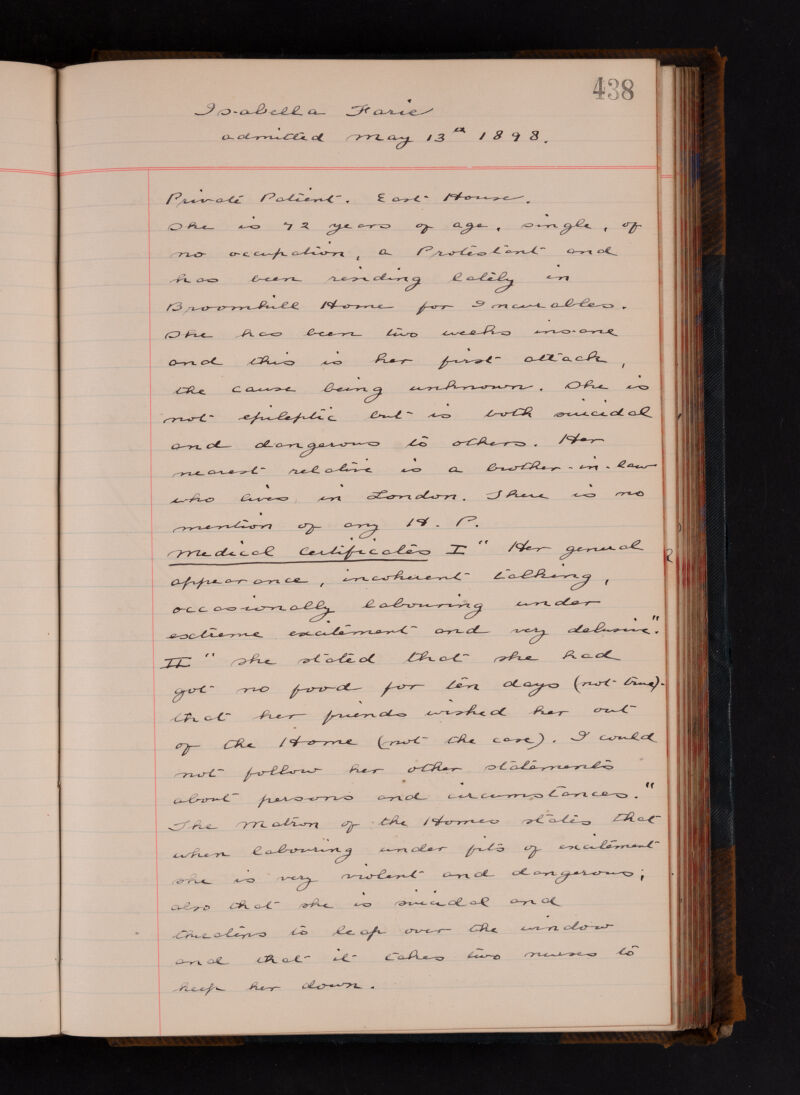 438
Isabella Farie
admitted May 13th 1898.
Private Patient. East House.
She is 72 years of age, single, of
no occupation, a Protestant and
has been residing lately in
Broomhill Home for Incurables.
She has been two weeks insane
and this is her first attack,
the cause being unknown. She is
not epileptic but is both suicidal
and dangerous to others. Her
nearest relative is a brother-in-law
who lives in London. There is no
mention of any H. P.
Medical Certificates I " Her general
appearance, incoherent talking,
occasionally labouring under
extreme excitement and very delusive."
II " She stated that she had
got no food for ten days (not true).
that her friends wished her out
of the Home (not the case). I could
not follow her other statements
about persons and circumstances."
The Matron of the Homes states that
when labouring under fits of excitement
she is very violent and dangerous;
also that she is suicidal and
threatens to leap over the window
and that it takes two nurses to
keep her down.